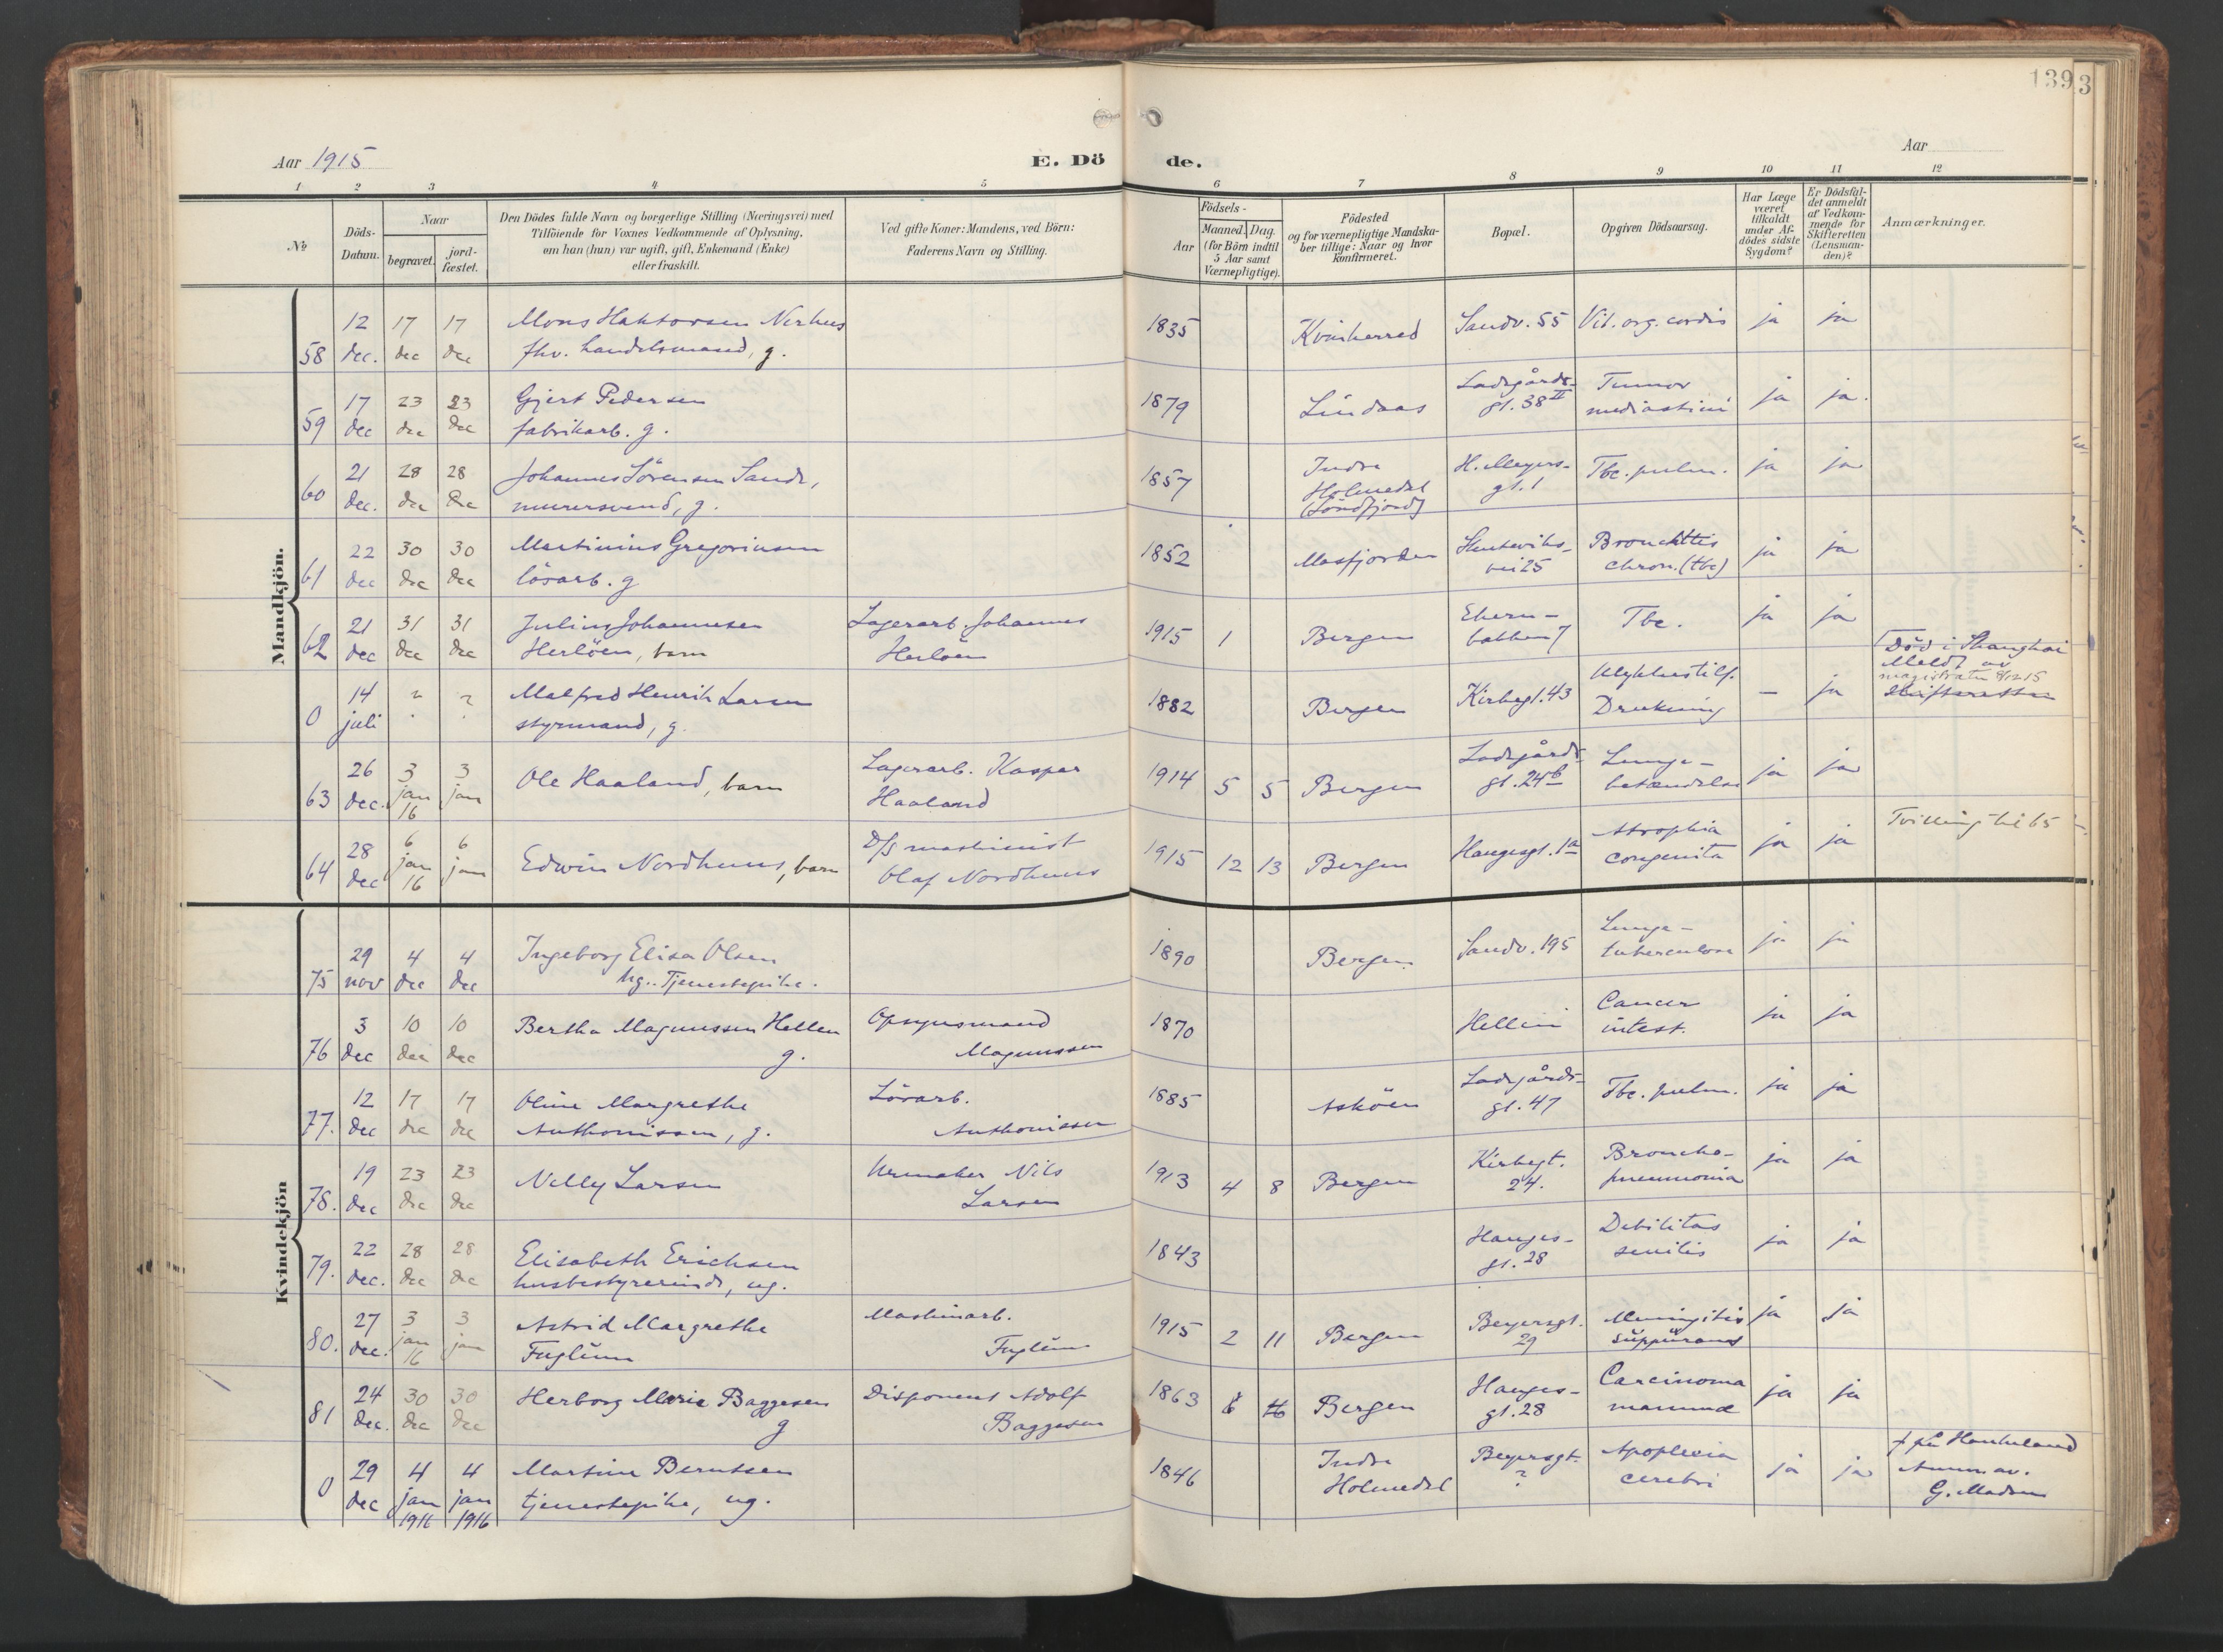 139
3
Aar 1915
E. Dö de.
Aar
1 2 3 4 5 6 7 8 9 10 11 12
No
Döds-
Datum.
Naar
begravet.
jord-
fæstet.
Den Dödes fulde Navn og borgerlige Stilling (Næringsvei) med
Tilföiende for Voxnes Vedkommende af Oplysning,
om han (hun) var ugift, gift, Enkemand (Enke)
eller fraskilt.
Ved gifte Koner: Mandens, ved Börn:
Faderens Navn og Stilling.
Födsels-
Aar
Maaned. Dag.
(for Börn indtil
5 Aar samt
Værnepligtige).
Födested
og for værnepligtige Mandska-
ber tillige: Naar og hvor
konfirmeret.
Bopæl.
Opgiven Dödsaarsag.
Har Læge
været
tilkaldt
under Af-
dödes sidste
Sygdom?
Er Dödsfal-
det anmeldt
af Vedkom-
mende for
Skifteretten
(Lensman-
den)?
Anmærkninger.
Mandkjön.
58 12 dec. 17 dec 17 dec
Mons Haktorsen Nerhus
fhv. handelsmand, g.
1835 Kvinherred Sandv. 55 Vit. org. cordis ja ja
59 17 dec 23 dec 23 dec
Gjert Pedersen
fabrikarb. g.
1879 Lindaas Ladegårds-
gt. 38 II
Tumor
mediastini ja ja.
60 21 dec. 28 dec 28 dec
Johannes Sörensen Sande,
murersvend, g.
1857 Indre
Holmedal
(Söndfjord)
H. Meyers-
gt. 1
Tbc. pulm. ja ja
61 22 dec 30 dec 30 dec
Martinius Gregoriussen
lösarb. g
1852 Masfjorden Skuteviks-
vei 25
Bronchitis
chron. (tbc) ja ja
62 21 dec 31 dec 31 dec
Julius Johannesen
Herlöen, barn
Lagerarb. Johannes
Herlöen
1915 1 Bergen
bakken 7
Tbc. ja ja
0 14 juli ? ?
Malfred Henrik Larsen
styrmand, g.
1882 Bergen Kirkegt. 43 Ulykkestilf.
Drukning — ja
Död i Shanghai
Meldt av
magistraten
skifteretten
63 26 dec. 3 jan 16 3 jan
Ole Haaland, barn
Lagerarb. Kaspar
Haaland
1914 5 5 Bergen Ladegårds-
gt. 24b
Lunge-
betændelse ja ja
64 28 dec 6 jan 16 6 jan
Edwin Nordhuus, barn
D/S maskinist
Olaf Nordhuus
1915 12 13 Bergen Haugesgt. 1a Atrophia
congenita ja ja
Tvilling til 65
Kvindekjön
75 29 nov 4 dec 4 dec
Ingeborg Elisa Olsen
ug. Tjenestepike.
1890 Bergen Sandv. 195 Lunge-
tuberculose ja ja
76 3 dec 10 dec 10 dec
Bertha Magnussen Hellen
g.
Opsynsmand
Magnussen
1870 Hellen Cancer
intest. ja ja
77. 12 dec 17 dec 17 dec
Oline Margrethe
Anthonissen, g.
Lösarb.
Anthonissen
1885 Asköen Ladegårds-
gt. 47
Tbc. pulm. ja ja
78. 19 dec 23 dec 23 dec
Nelly Larsen
Urmaker Nils
Larsen
1913 4 8 Bergen Kirkegt.
24.
Broncho-
pneumonia ja ja
79. 22 dec. 28 dec 28 dec
Elisabeth Erichsen
husbestyrerinde, ug.
1843 Hauges-
gt. 28
Debilitas
senilis ja ja
80. 27 dec. 3 jan 16 3 jan
Astrid Margrethe
Fuglum
Maskinarb.
Fuglum
1915 2 11 Bergen Beyersgt.
29
Meningitis
suppurans ja ja
81 24 dec. 30 dec 30 dec
Herborg Marie Baggesen
g
Disponent Adolf
Baggesen
1863 Bergen Hauges-
gt. 28
Carcinoma
mammae ja ja
0 29 dec 4 jan 1916 4 jan 1916
Martine Berntsen
tjenestepike, ug.
1846 Indre
Holmedal
Beyersgt.
?
Apoplexia
cerebri ja ja
† på Haukeland
Anm. av.
G. Madsen